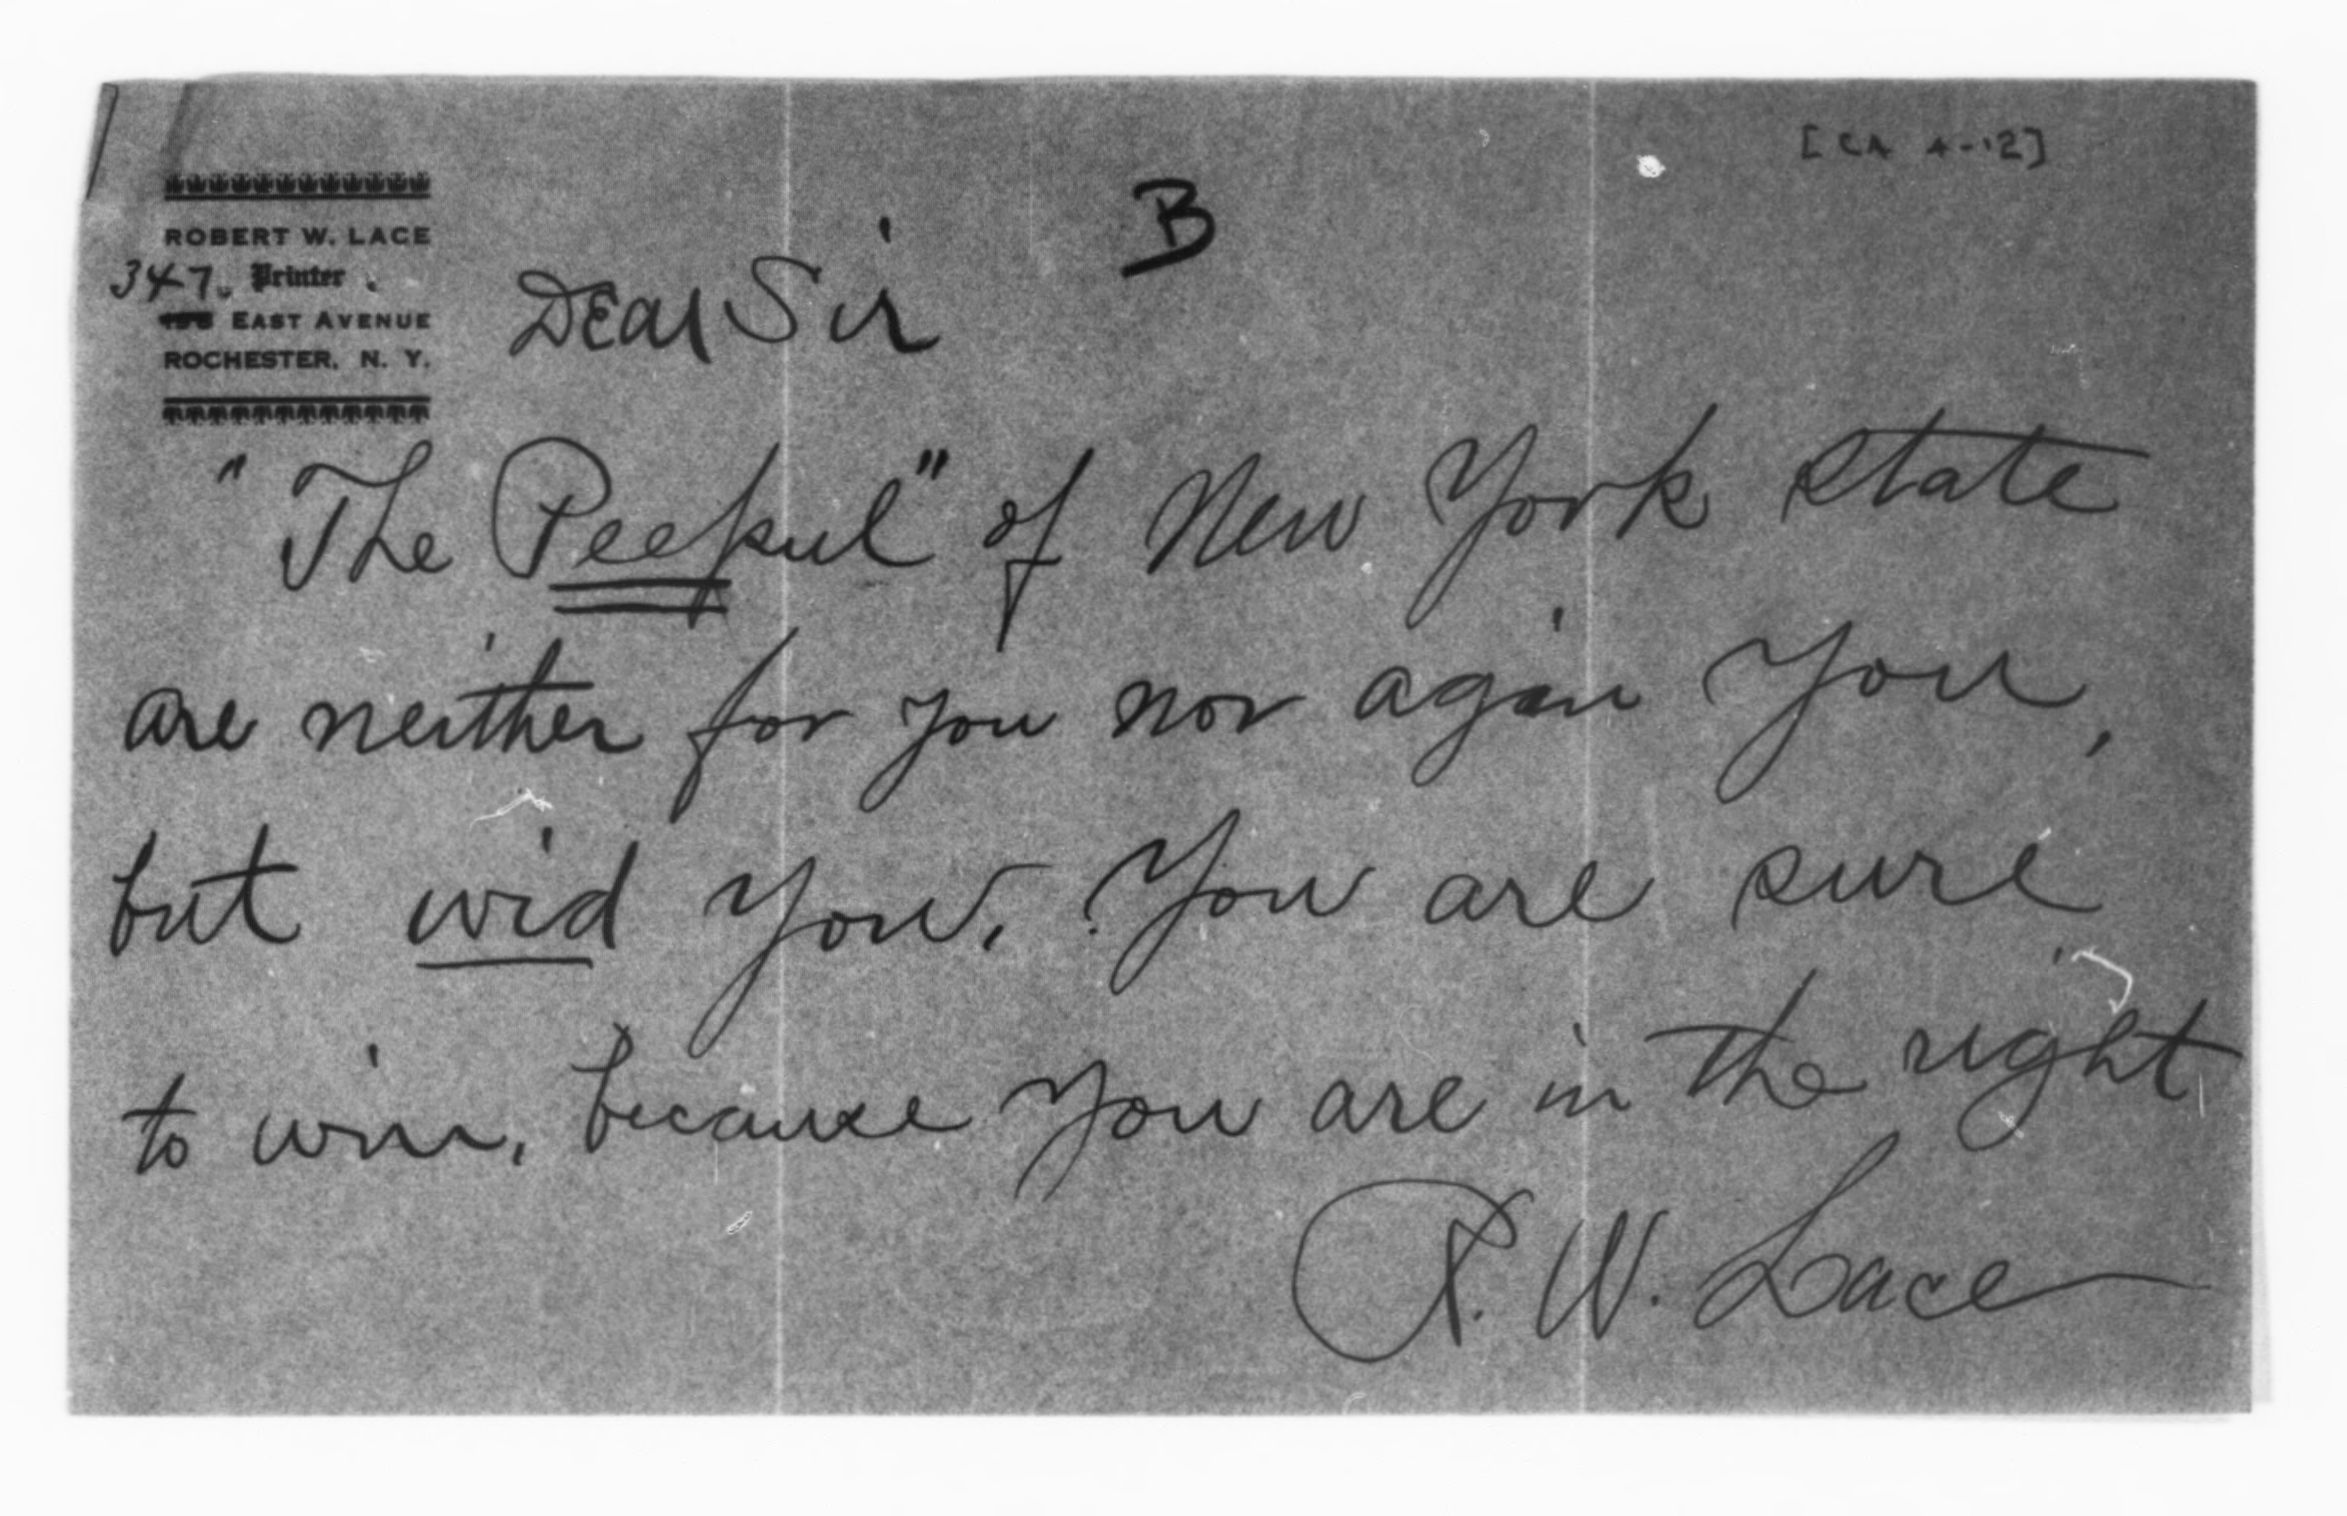 [CA 4-12]
B
ROBERT W. LACE
347. Printer.
EAST AVENUE
ROCHESTER, N. Y.
Dear Sir
"The Peepul" of New York state
are neither for you nor again you,
but wid you. You are sure
to win, because you are in the right
R. W. Lace